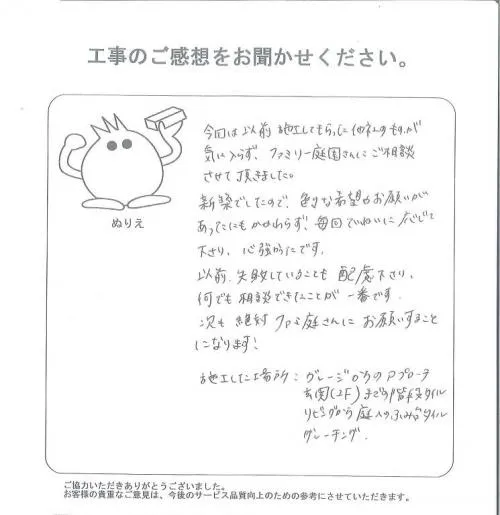 工事のご感想をお聞かせください。
ぬりえ
今回は以前施工してもらった他社のものが
気に入らず、ファミリー庭園さんにご相談
させて頂きました。
新築でしたので、色々な希望やお願いが
あったにもかかわらず、毎回ていねいに応じて
下さり、心強かったです。
以前、失敗していることも配慮下さり、
何でも相談できたことが一番です。
次も絶対ファミ庭さんにお願いすること
になります!
施工した場所:ガレージからのアプローチ
玄関(2F)までの階段タイル
リビングから庭へのふみ台タイル
グレーチング.
ご協力いただきありがとうございました。
お客様の貴重なご意見は、今後のサービス品質向上のための参考にさせていただきます。